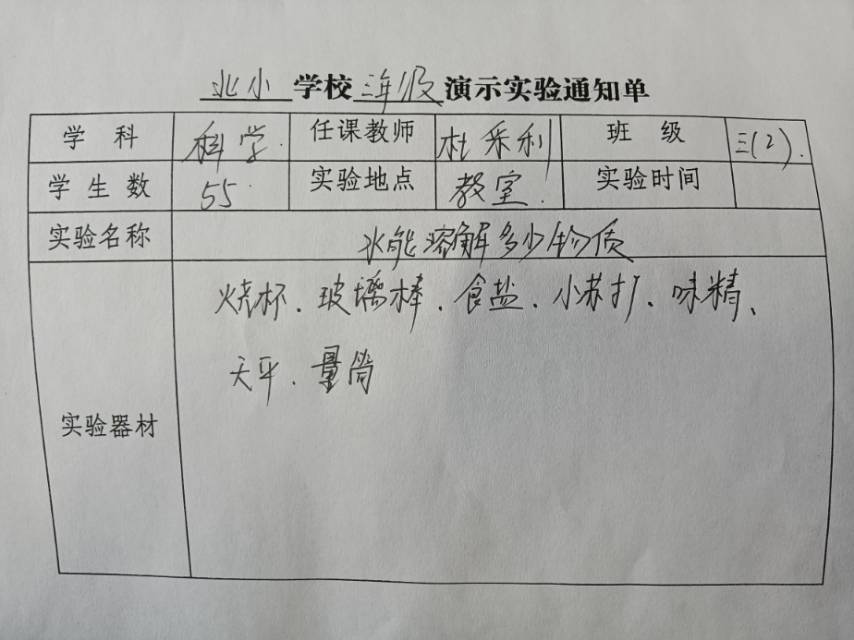 北小 学校 三年级 演示实验通知单
学 科 科学. 任课教师 杜采利 班 级 三(2).
学 生 数 55 实验地点 教室. 实验时间
实验名称 水能溶解多少物质
实验器材 烧杯、玻璃棒、食盐、小苏打、味精、
天平、量筒